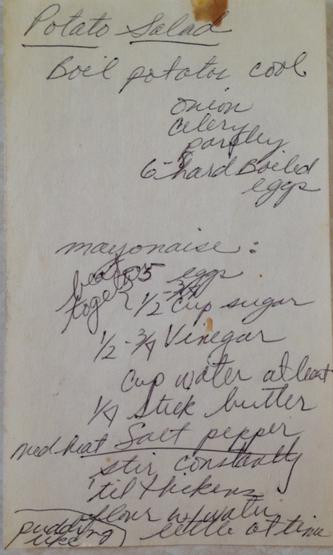 Potato Salad
Boil potatos cool
onion
celery
parsley
6-8 hard Boiled
eggs
mayonaise:
beat together 5 eggs
1/2 - 3/4 cup sugar
1/2 - 3/4 Vinegar
Cup water at least
1/4 stick butter
med heat Salt pepper
stir constantly
'til thickens
flour w/ water
pudding like little at time